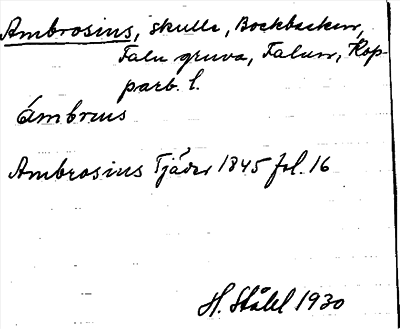 Ambrosius, skulle, Bockbacken,
Falu gruva, Falun, Kop-
parb. l.
Ámbrus
Ambrosius Tjäder 1845 fol. 16
H. Ståhl 1930